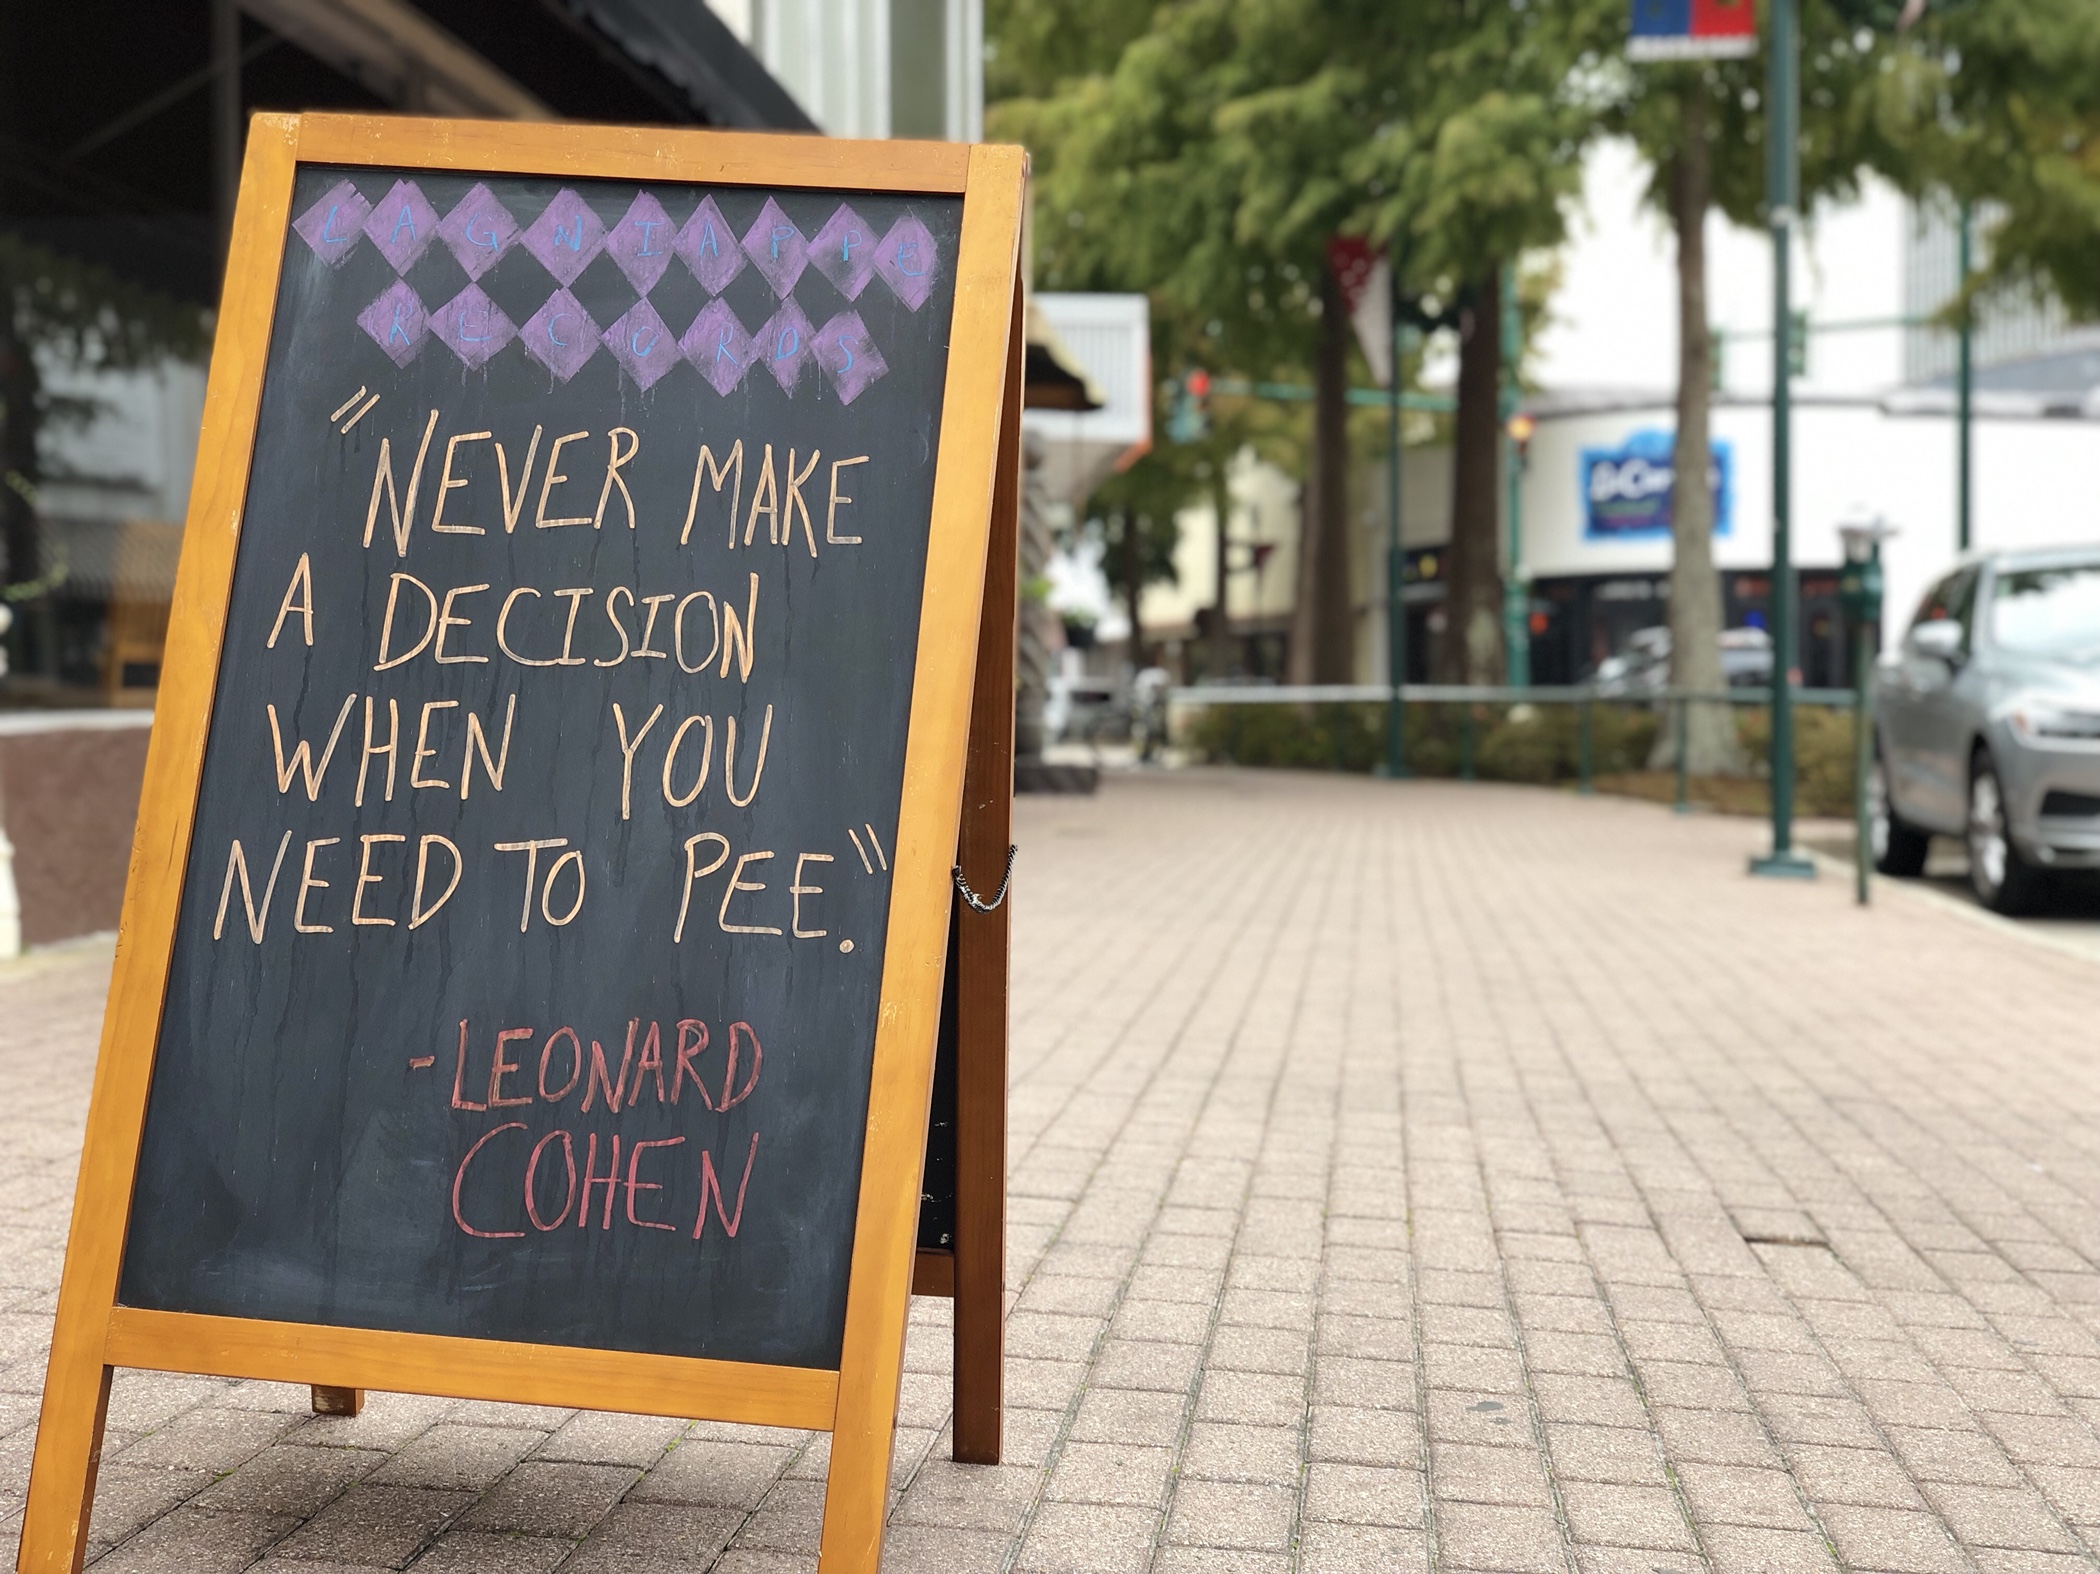 LAGNIAPPE
RECORDS
"NEVER MAKE
A DECISION
WHEN YOU
NEED TO PEE."
-LEONARD
COHEN